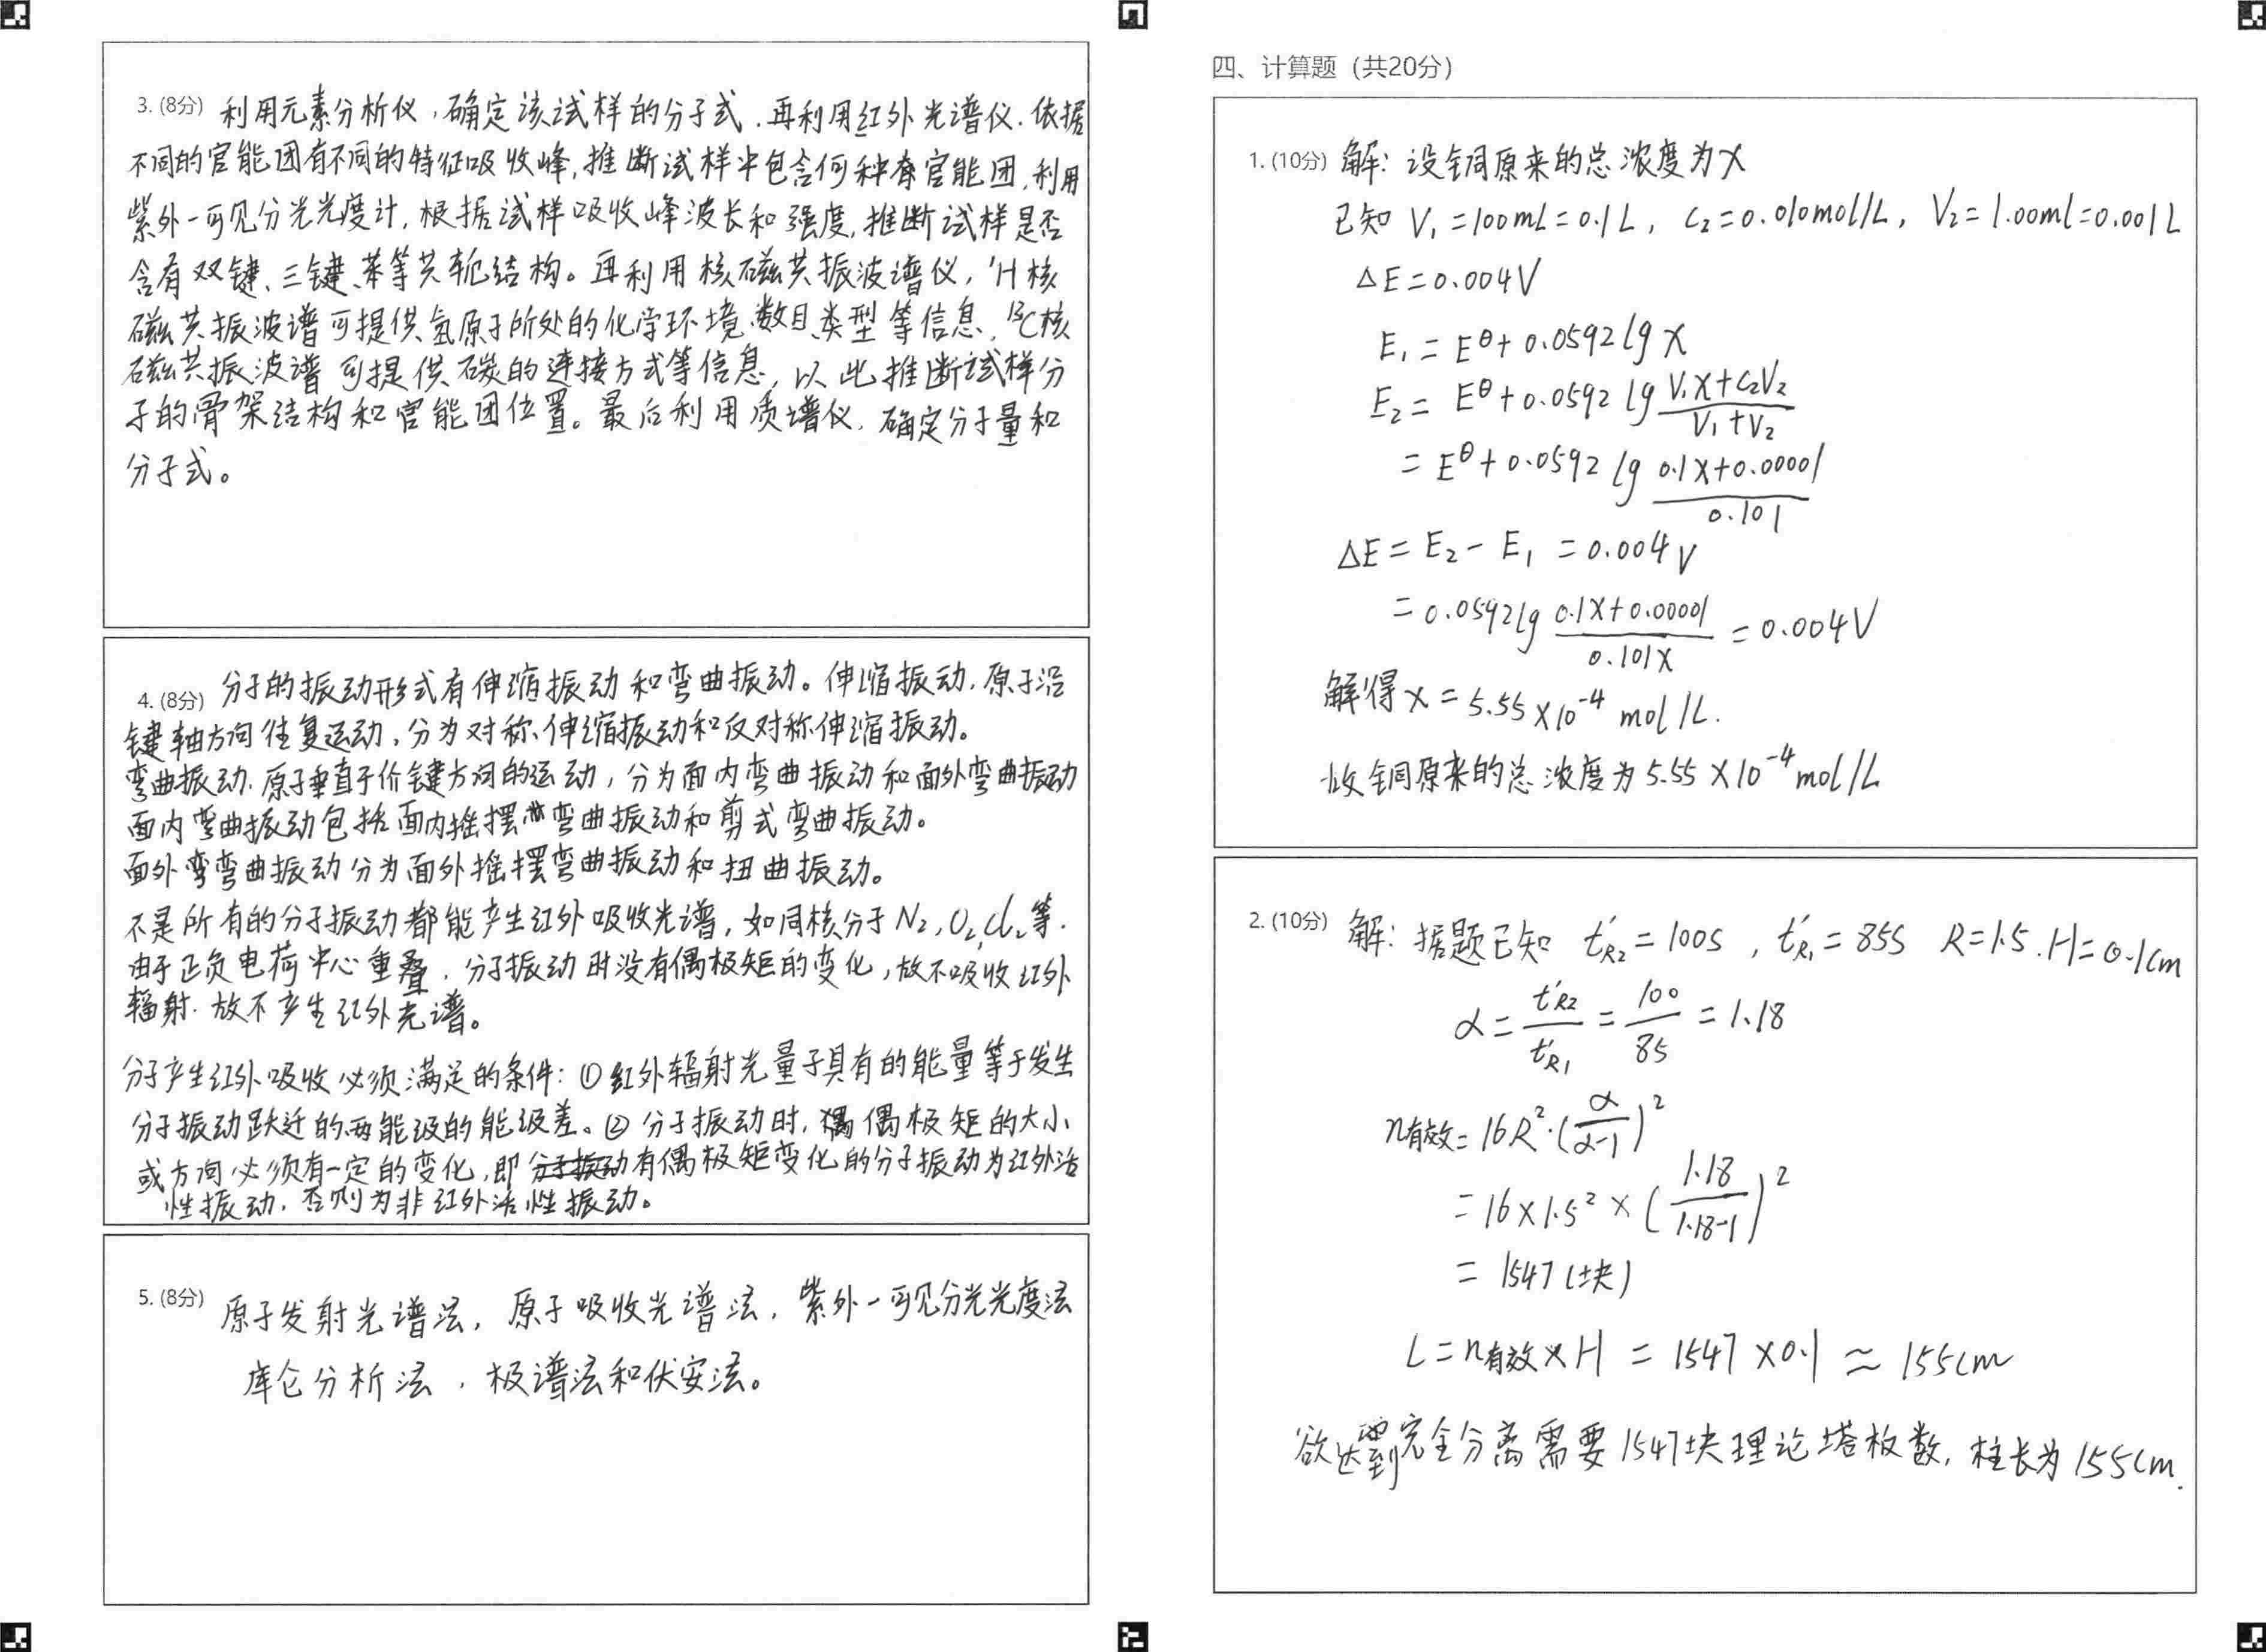 3. (8分) 利用元素分析仪,确定该试样的分子式.再利用红外光谱仪.依据
不同的官能团有不同的特征吸收峰,推断试样中包含何种官能团,利用
紫外-可见分光光度计,根据试样吸收峰波长和强度,推断试样是否
含有双键、三键、苯等共轭结构。再利用核磁共振波谱仪,¹H核
磁共振波谱可提供氢原子所处的化学环境、数目、类型等信息,¹³C核
磁共振波谱可提供碳的连接方式等信息,以此推断试样分
子的骨架结构和官能团位置。最后利用质谱仪,确定分子量和
分子式。
4. (8分) 分子的振动形式有伸缩振动和弯曲振动。伸缩振动.原子沿
键轴方向往复运动,分为对称伸缩振动和反对称伸缩振动。
弯曲振动.原子垂直于价键方向的运动,分为面内弯曲振动和面外弯曲振动
面内弯曲振动包括面内摇摆弯曲振动和剪式弯曲振动。
面外弯弯曲振动分为面外摇摆弯曲振动和扭曲振动。
不是所有的分子振动都能产生红外吸收光谱,如同核分子N₂,O₂,Cl₂等.
由于正负电荷中心重叠,分子振动时没有偶极矩的变化,故不吸收红外
辐射.故不产生红外光谱。
分子产生红外吸收必须满足的条件:①红外辐射光量子具有的能量等于发生
分子振动跃迁的两能级的能级差。②分子振动时,偶极矩的大小
或方向必须有一定的变化,即分子振动有偶极矩变化的分子振动为红外活
性振动,否则为非红外活性振动。
5. (8分) 原子发射光谱法,原子吸收光谱法,紫外-可见分光光度法
库仑分析法,极谱法和伏安法。
四、计算题 (共20分)
1. (10分) 解:设铜原来的总浓度为x
已知 V₁=100mL=0.1L, C₂=0.010mol/L, V₂=1.00ml=0.001L
ΔE=0.004V
E₁=E^θ+0.0592lg x
E₂=E^θ+0.0592 lg (V₁x+C₂V₂)/(V₁+V₂)
=E^θ+0.0592 lg (0.1x+0.00001)/0.101
ΔE=E₂-E₁=0.004V
=0.0592lg (0.1x+0.00001)/(0.101x) =0.004V
解得x=5.55×10⁻⁴ mol/L.
故铜原来的总浓度为5.55×10⁻⁴mol/L
2. (10分) 解:据题已知 t'R₂=100s, t'R₁=85s R=1.5.H=0.1cm
α=t'R₂/t'R₁=100/85=1.18
n有效=16R²·(α/(α-1))²
=16×1.5²×(1.18/(1.18-1))²
=1547(块)
L=n有效×H=1547×0.1≈155cm
欲达到完全分离需要1547块理论塔板数,柱长为155cm.